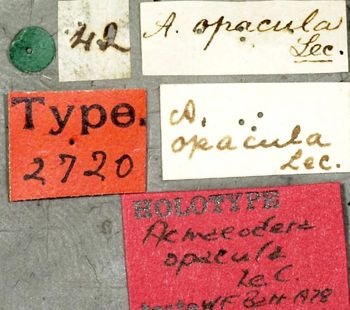 42
A. opacula
Lec.
Type.
2720
A.
opacula
Lec.
HOLOTYPE
Acmaeodera
opacula
Lec.